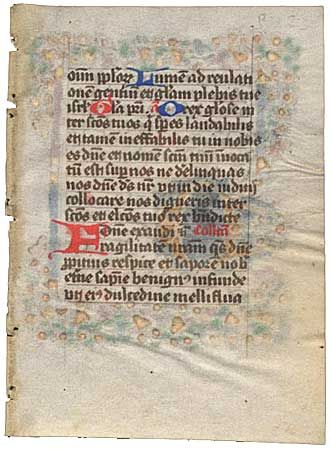 oīm ipsoꝝ Lumē ad reulati
onē gentiū et glām plebis tue
isrl Gla pri. O rex gl'ose in
ter scōs tuos q̄ sp̄es laudabilis
et tamē in effabilis tu in nobis
es dn̄e et nomē scm̄ tuū inuoca
tū est sup nos ne delinquas
nos dn̄e ds̄ nr̄ vt in die iudicij
collocare nos digneris inter
scōs et el'cos tuos rex bn̄dicte
Dn̄e exaudi Collcta
Fragilitatē nr̄am q̄s dn̄e
ppitius respice et sapore nob
etne sapiē benignꝰ infunde
vt eiꝰ dulcedine melliflua